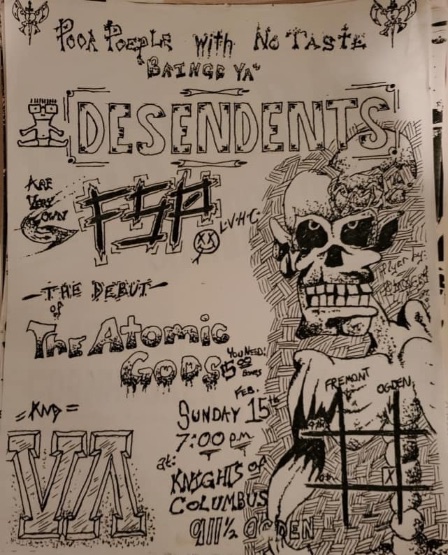 Poor People with No Taste
Brings Ya'
DESENDENTS
ARE
VERY
OWN
FSP
L.V.H.C.
Flyer by:
-THE DEBUT-
of
The Atomic
Gods
YOU NEED!
$5.00
FEB.
SUNDAY 15th
7:00 p.m.
at:
KNIGHTS OF
COLUMBUS
911½ OGDEN
FREMONT
OGDEN
9th
10th
X
= AND =
VA